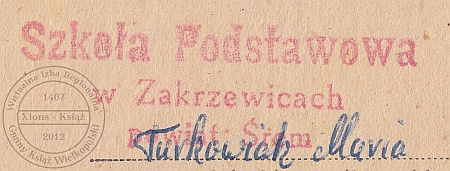 Szkoła Podstawowa
w Zakrzewicach
powiat Śrem
Turkowiak Maria
Wirtualna Izba Regionalna
1407
Xions - Książ
2012
Gminy Książ Wielkopolski